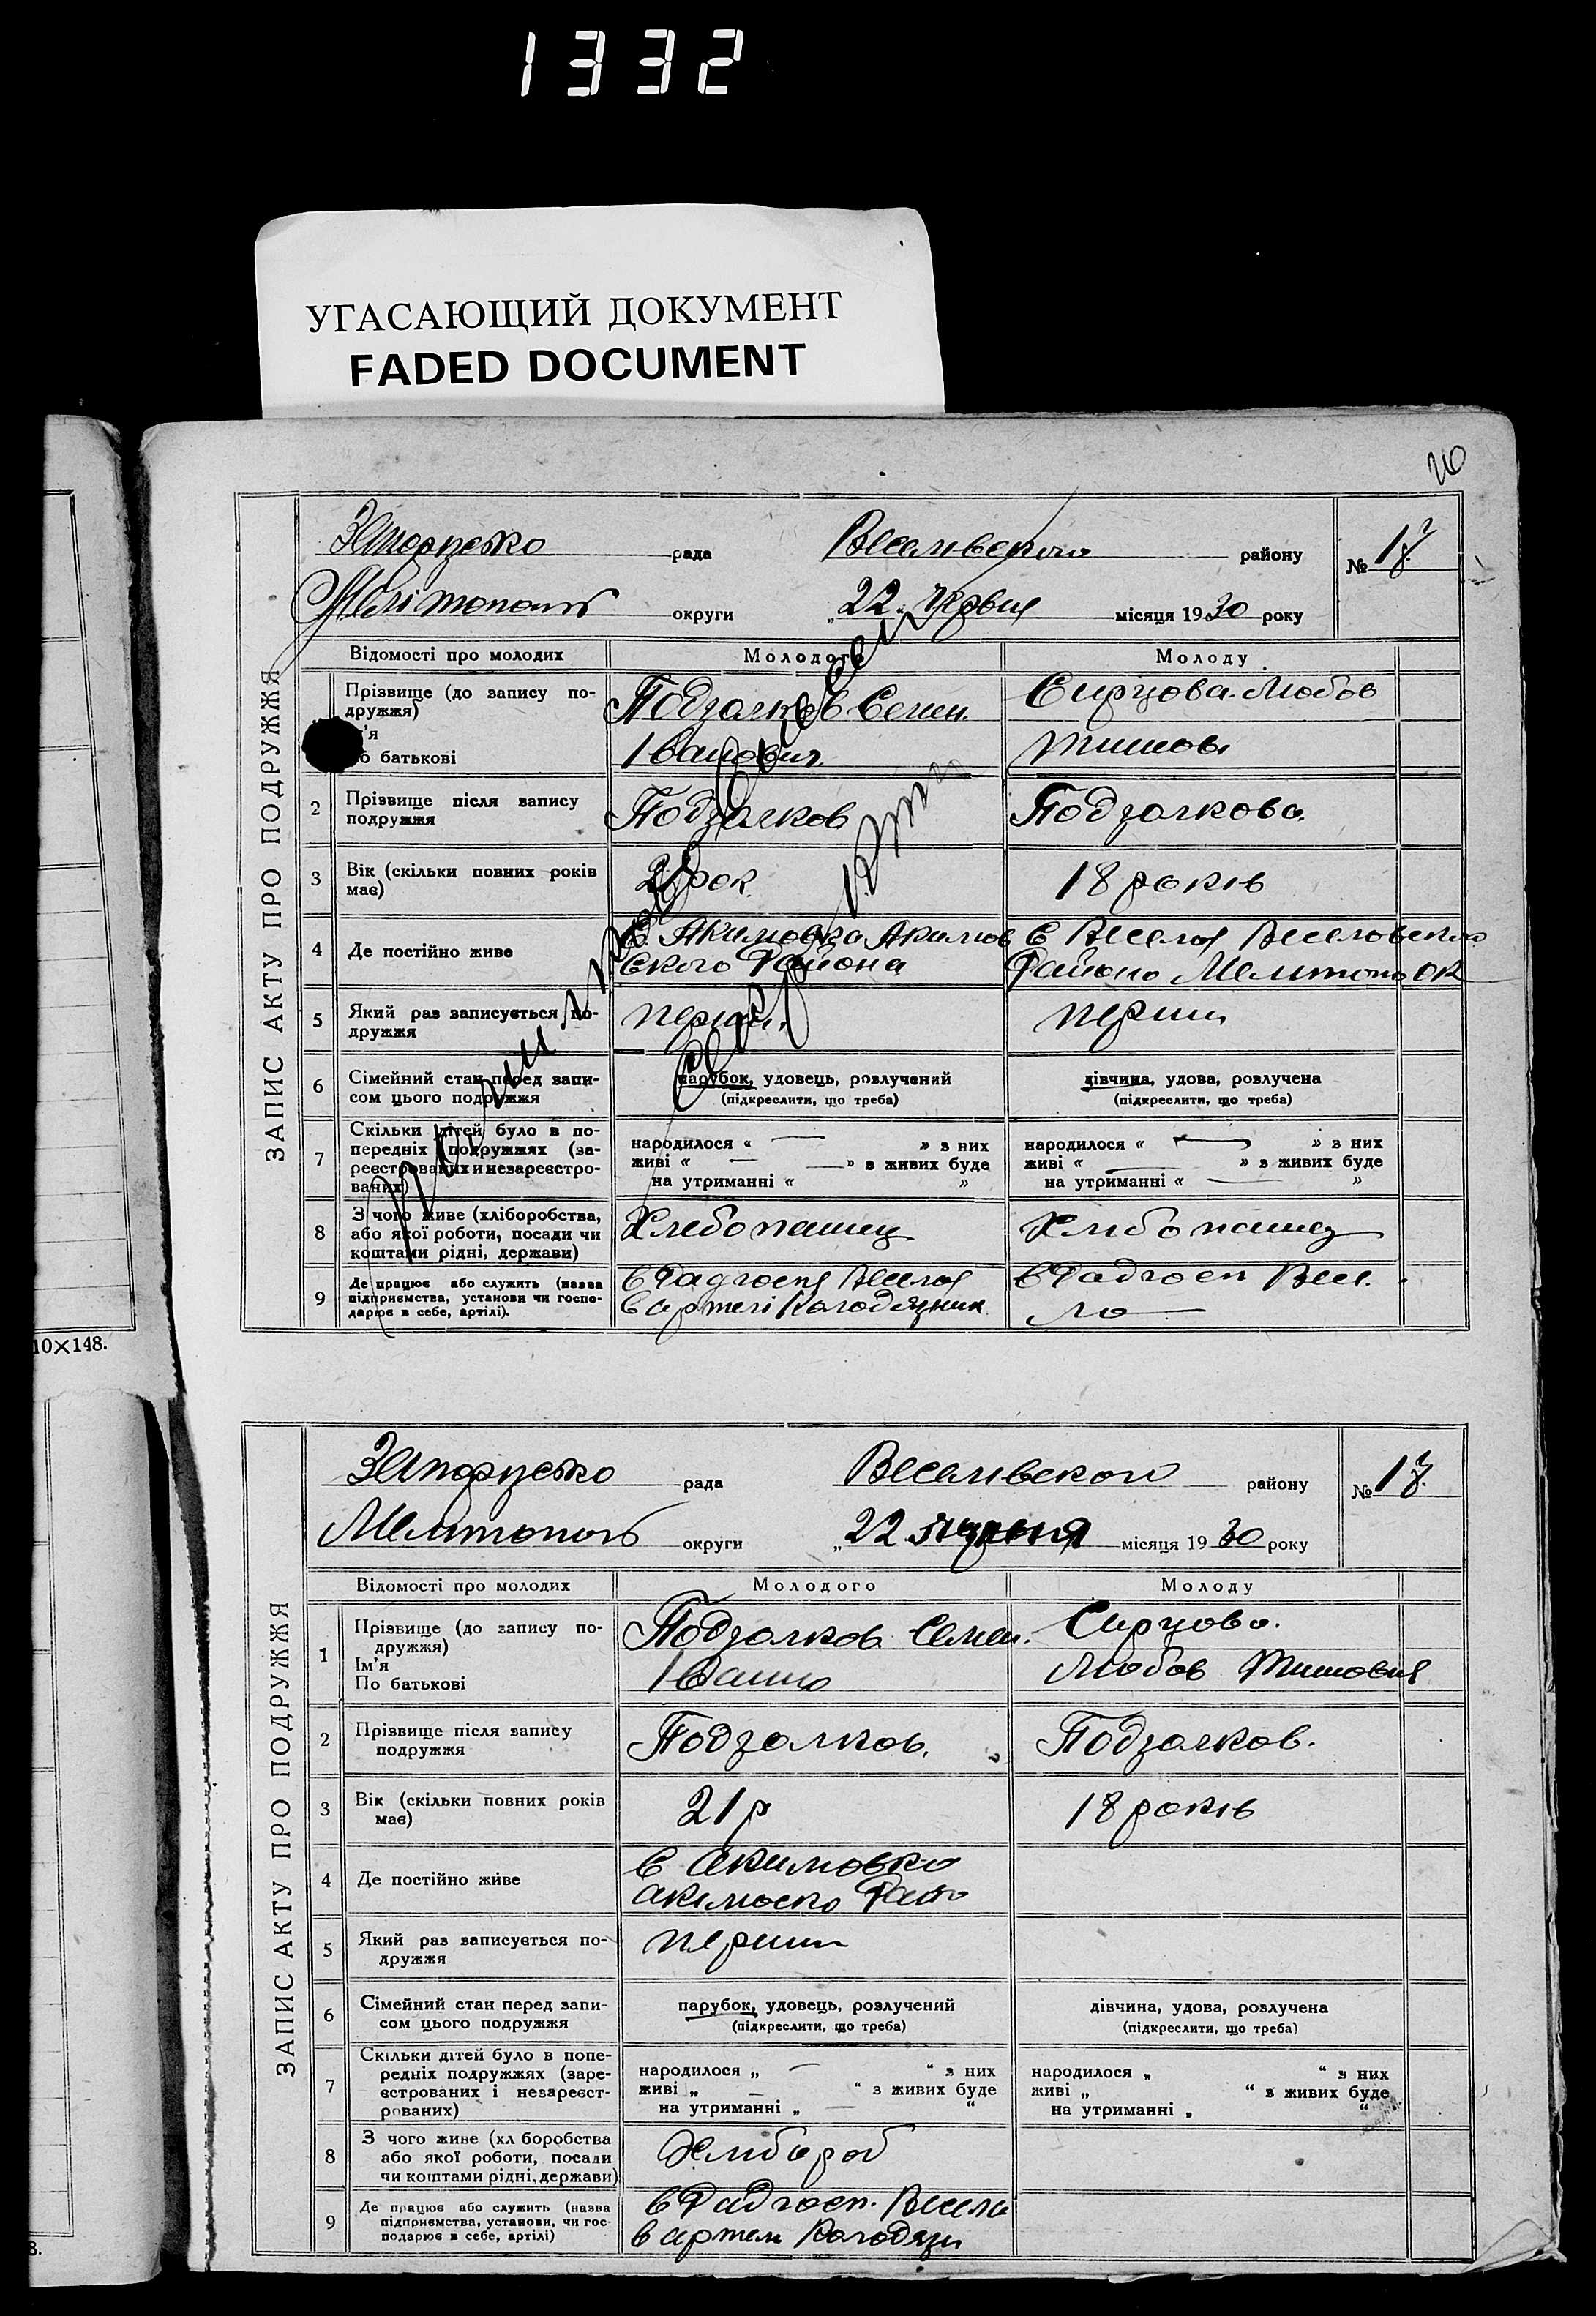 1332
УГАСАЮЩИЙ ДОКУМЕНТ
FADED DOCUMENT
ЗАПИС АКТУ ПРО ПОДРУЖЖЯ
рада Веселівского району № 17
округи „22 Червня місяця 1930 року
Відомості про молодих Молодого Молоду
Прізвище (до запису по- Подзолков Семен Сирцова Любов
дружжя)
м'я
о батькові Іванович
2 Прізвище після запису Подзолков Подзолкова
подружжя
3 Вік (скільки повних років 21 рок 18 років
має)
4 Де постійно живе С. Акимовка Акимов С Веселое Веселовского
ского Района Района
5 Який раз записується по- перши
дружжя
6 Сімейний стан перед запи- парубок, удовець, розлучений дівчина, удова, розлучена
сом цього подружжя (підкреслити, що треба) (підкреслити, що треба)
7 Скільки дітей було в по- народилося « — » з них народилося « — » з них
передніх подружжях (за- живі « — » в живих буде живі « — » в живих буде
реєстрованих и незареєстро- на утриманні « » на утриманні « — »
ваних)
8 З чого живе (хліборобства, Хлебопашец Хлибопашец
або якої роботи, посади чи
коштами рідні, держави)
9 Де працює або служить (назва в Радгосп в Радгосп Весе
підприємства, установи чи госпо- в артелі ло
дарює в себе, артілі).
10×148.
ЗАПИС АКТУ ПРО ПОДРУЖЖЯ
рада Веселівского району № 17
округи „22 червня місяця 1930 року
Відомості про молодих Молодого Молоду
1 Прізвище (до запису по- Подзолков Семен Сирцова
дружжя)
Ім'я Любов
По батькові
2 Прізвище після запису Подзолков. Подзолков.
подружжя
3 Вік (скільки повних років 21 р 18 років
має)
4 Де постійно живе С Акимовка
5 Який раз записується по- перши
дружжя
6 Сімейний стан перед запи- парубок, удовець, розлучений дівчина, удова, розлучена
сом цього подружжя (підкреслити, що треба) (підкреслити, що треба)
7 Скільки дітей було в попе- народилося „ — “ з них народилося „ “ з них
редніх подружжях (заре- живі „ — “ з живих буде живі „ “ з живих буде
єстрованих і незареєст- на утриманні „ — “ на утриманні „ “
рованих)
8 З чого живе (хл боробства Хлибороб
або якої роботи, посади
чи коштами рідні, держави)
9 Де працює або служить (назва в Радгосп. Весело
підприємства, установи, чи гос- в артели
подарює в себе, артілі)
8.